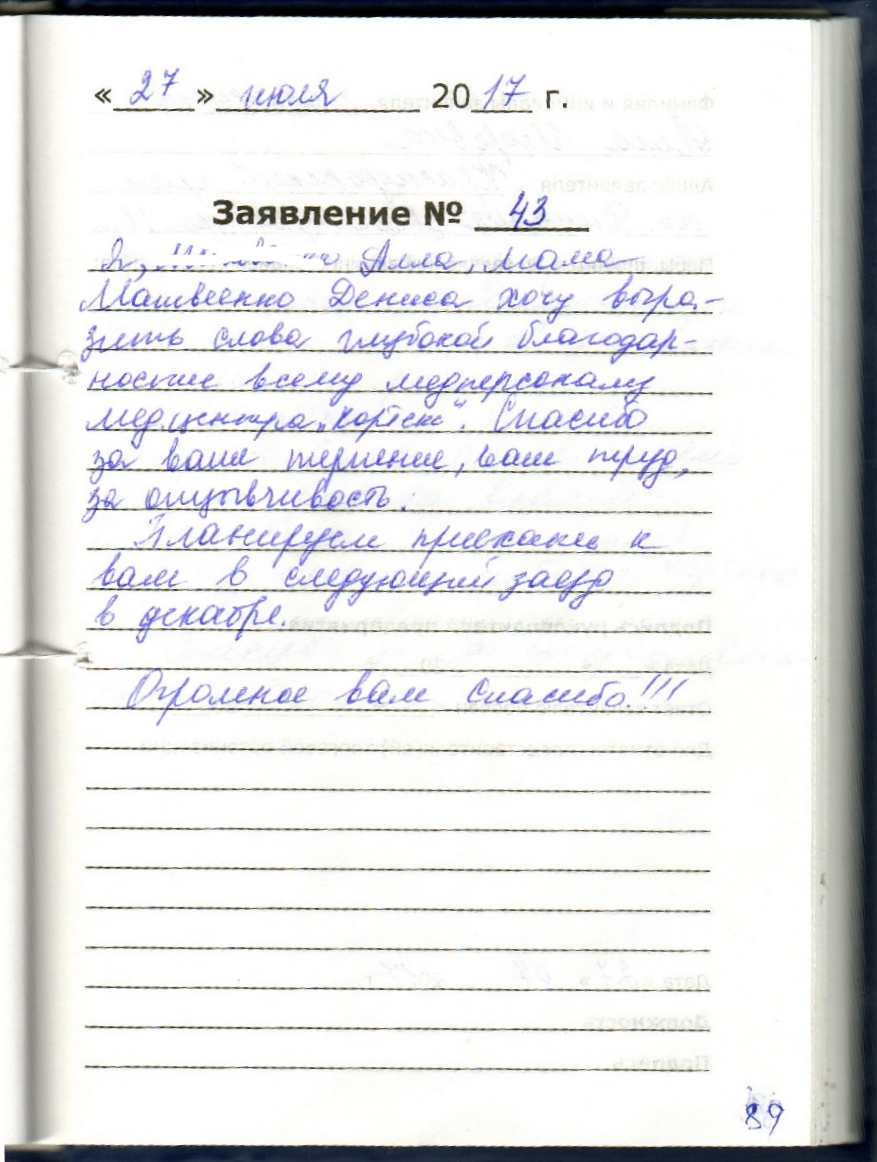 « 27 » июля 2017 г.
Заявление № 43
Я, Алла, мама
Матвеенко Дениса хочу выра-
зить слова глубокой благодар-
ности всему медперсоналу
медцентра „Кортекс“. Спасибо
за ваше терпение, ваш труд,
за отзывчивость.
Планируем приехать к
вам в следующий заезд
в декабре.
Огромное вам спасибо!!!
89